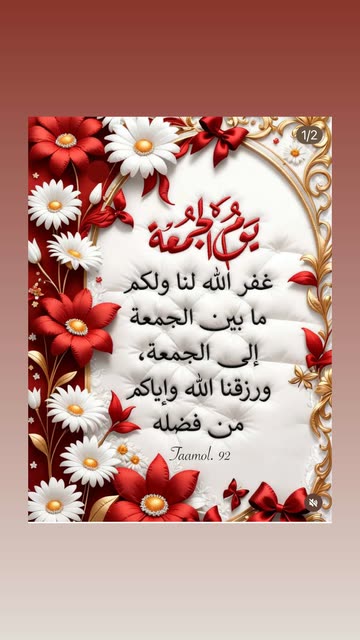 1/2
يوم الجمعة
غفر الله لنا ولكم
ما بين الجمعة
إلى الجمعة،
ورزقنا الله وإياكم
من فضله
Taamol. 92